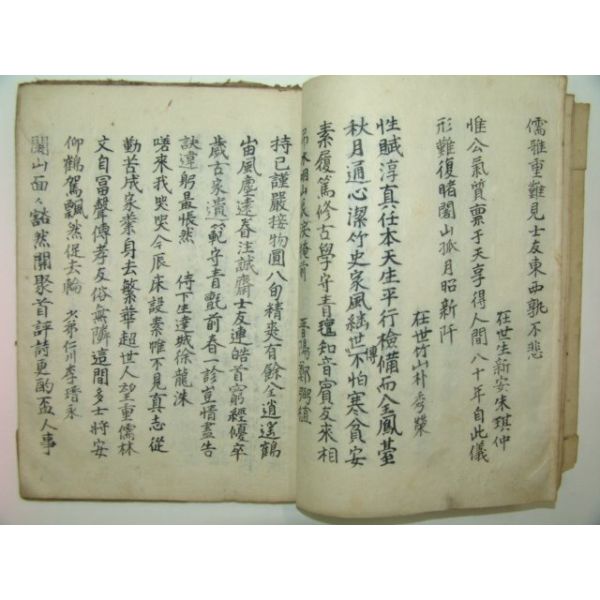 儒雅重難見士友東西孰不悲
在世生新安朱琪仲
惟公氣質禀于天享得人間八十年自此儀
形難復睹闍山孤月昭新阡
在世竹山朴秀榮
性賦淳真任本天生平行檢備而全風臺
秋月通心潔竹史家風継世傳不怕寒貧安
素履篤修古學守青氊知音賓友來相
持己謹嚴接物圓八旬精爽有餘全逍遙鶴
宙風塵遠春注誠齋士友連皓首窮經優卒
歲古家遺範守青氈前春一診宣情盡告
訣違躬最悵然 侍下生達城徐龍洙
嗟來我哭哭今辰床設素帷不見真志從
勤苦成家業身去繁華超世人望重儒林
文自冨聲傳孝友俗無隣這間多士將安
仰鶴駕飄然促去輪 少弟仁川李瑨永
闍山面々豁然開聚首評詩更酌盃人事